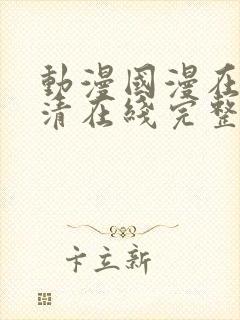 動漫國漫在
清在綫完整
卞立新